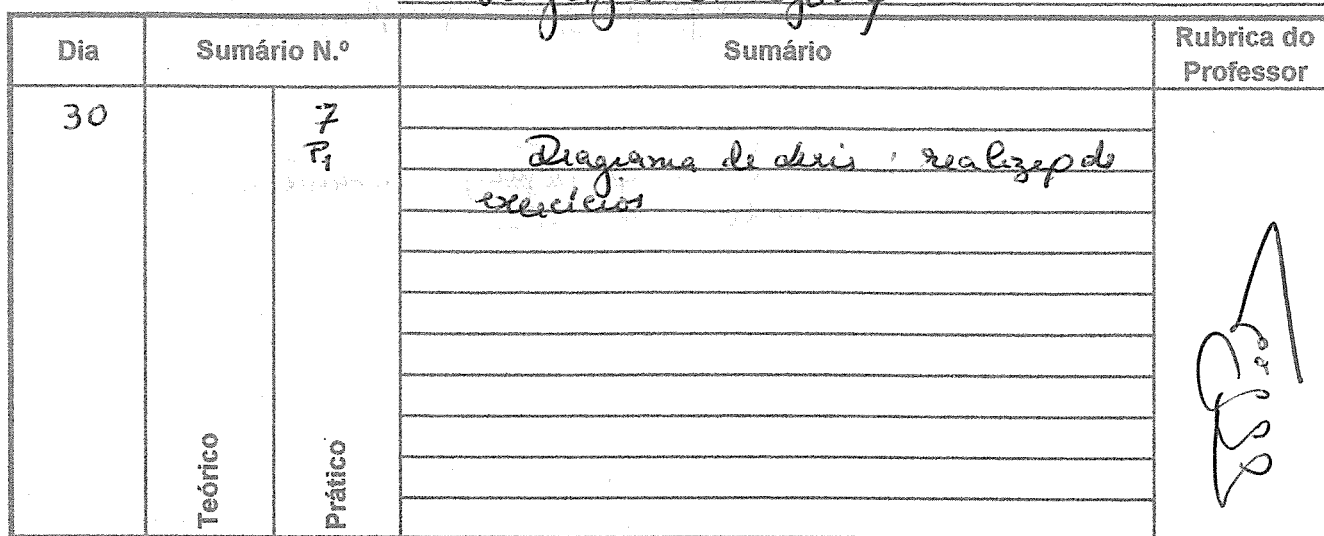 Dia
Sumário N.º
Sumário
Rubrica do
Professor
30
7
P1
Diagrama de : realização de
exercícios
Teórico
Prático